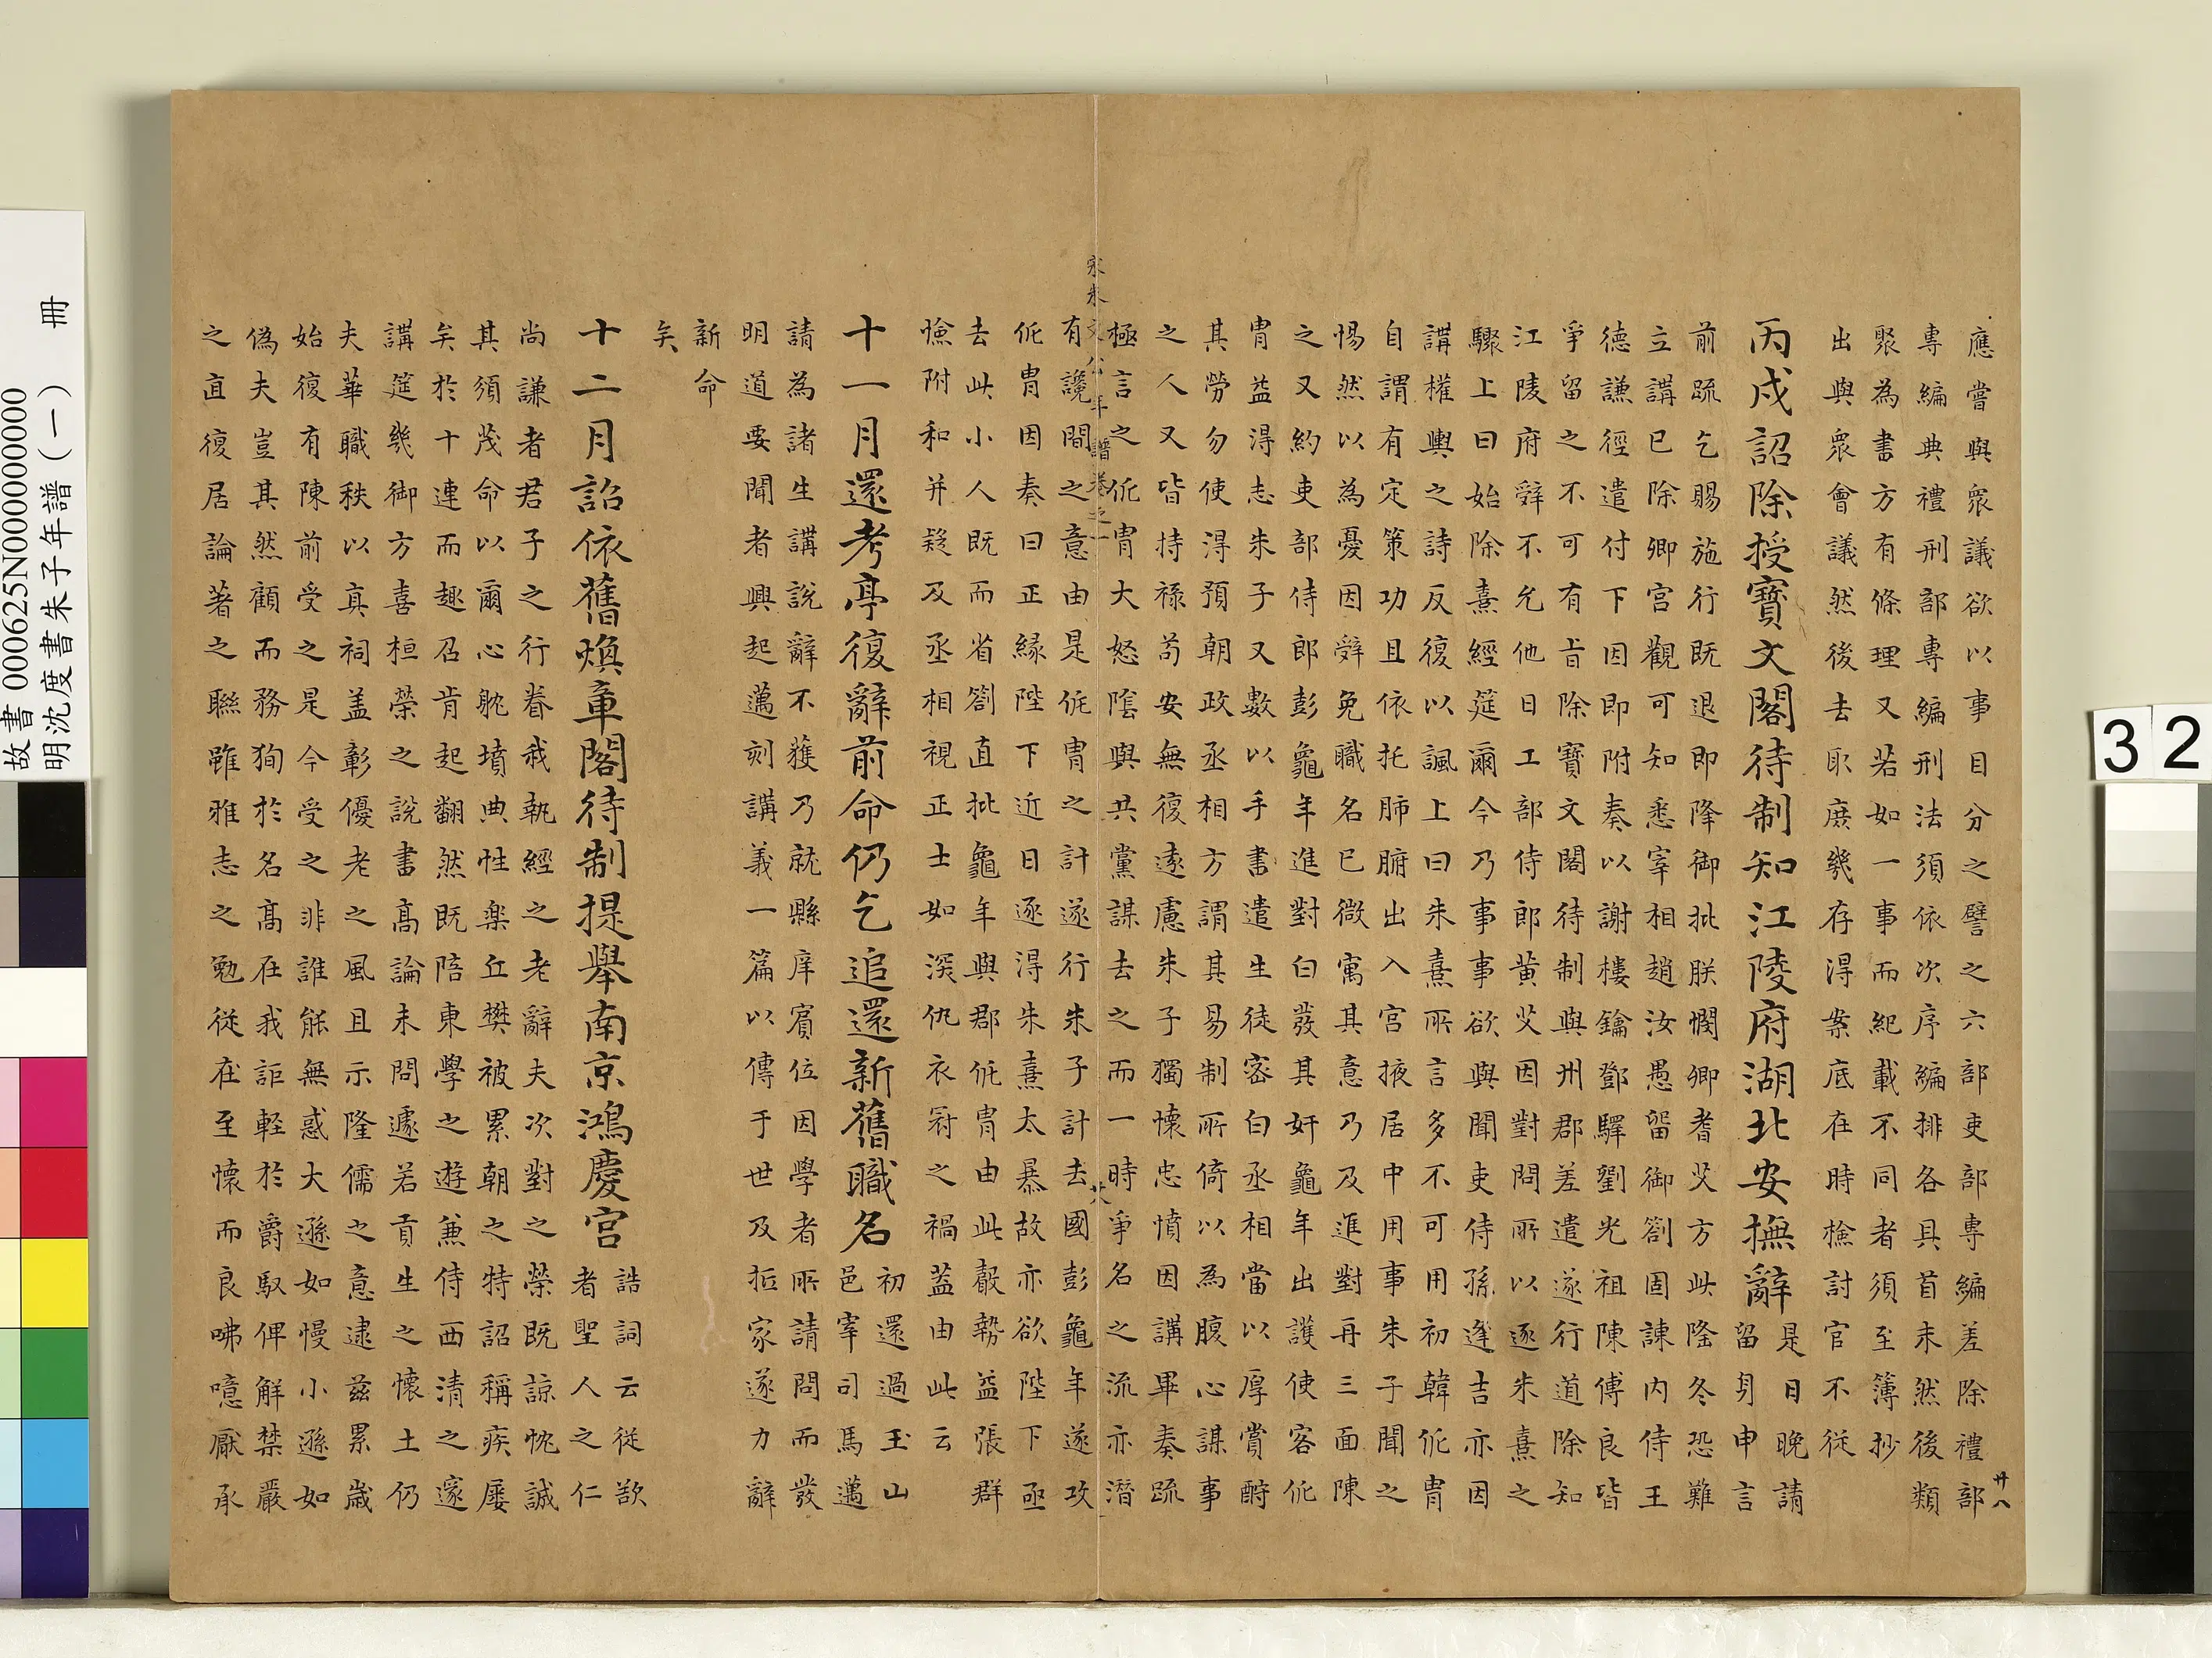 應嘗與眾議欲以事目分之譬之六部吏部專編差除禮部
專編典禮刑部專編刑法須依次序編排各具首末然後類
聚為書方有條理又若如一事而紀載不同者須至簿抄
出與眾會議然後去取庶幾存得案底在時檢討官不從
丙戌詔除授寶文閣待制知江陵府湖北安撫辭
是日晚請
留身申言
前疏乞賜施行既退即降御批朕憫卿耆艾方此隆冬恐難
立講已除卿宮觀可知悉宰相趙汝愚留御劄固諫內侍王
德謙徑遣付下因即附奏以謝樓鑰鄧驛劉光祖陳傅良皆
爭留之不可有旨除寶文閣待制與州郡差遣遂行道除知
江陵府辤不允他日工部侍郎黃艾因對問所以逐朱熹之
驟上曰始除熹經筵爾今乃事事欲與聞吏侍孫逢吉亦因
講權輿之詩反復以諷上曰朱熹所言多不可用初韓侂冑
自謂有定策功且依托肺腑出入宮掖居中用事朱子聞之
惕然以為憂因辤免職名已微寓其意乃及進對再三面陳
之又約吏部侍郎彭龜年進對白發其奸龜年出護使客侂
冑益得志朱子又數以手書遣生徒密白丞相當以厚賞酧
其勞勿使得預朝政丞相方謂其易制所倚以為腹心謀事
之人又皆持祿苟安無復遠慮朱子獨懷忠憤因講畢奏疏
極言之侂冑大怒陰與共黨謀去之而一時爭名之流亦潛
宋朱文公年譜卷之一 廿八
有讒間之意由是侂冑之計遂行朱子計去國彭龜年遂攻
侂冑因奏曰正緣陛下近日逐得朱熹太暴故亦欲陛下亟
去此小人既而省劄直批龜年與郡侂冑由此聲勢益張群
憸附和并疑及丞相視正士如深仇衣冠之禍蓋由此云
十一月還考亭復辭前命仍乞追還新舊職名
初還過玉山
邑宰司馬邁
請為諸生講說辭不獲乃就縣庠賓位因學者所請問而發
明道要聞者興起邁刻講義一篇以傳于世及抵家遂力辭
新命
矣
十二月詔依舊煥章閣待制提舉南京鴻慶宮
誥詞云從欲
者聖人之仁
尚謙者君子之行眷我執經之老辭夫次對之榮既諒忱誠
其須茂命以爾心躭墳典性樂丘樊被累朝之特詔稱疾屢
矣於十連而趣召肯起翻然既陪東學之遊兼侍西清之邃
講筵幾御方喜桓榮之說書高論未問遽若貢生之懷土仍
夫華職秩以真祠盖彰優老之風且示隆儒之意逮茲累歲
始復有陳前受之是今受之非誰能無惑大遜如慢小遜如
偽夫豈其然顧而務狥於名高在我詎輕於爵馭俾解禁嚴
之直復居論著之聯雖雅志之勉從在至懷而良咈噫厭承
卅八
故書 000625N000000000
明沈度書朱子年譜(一) 冊
32